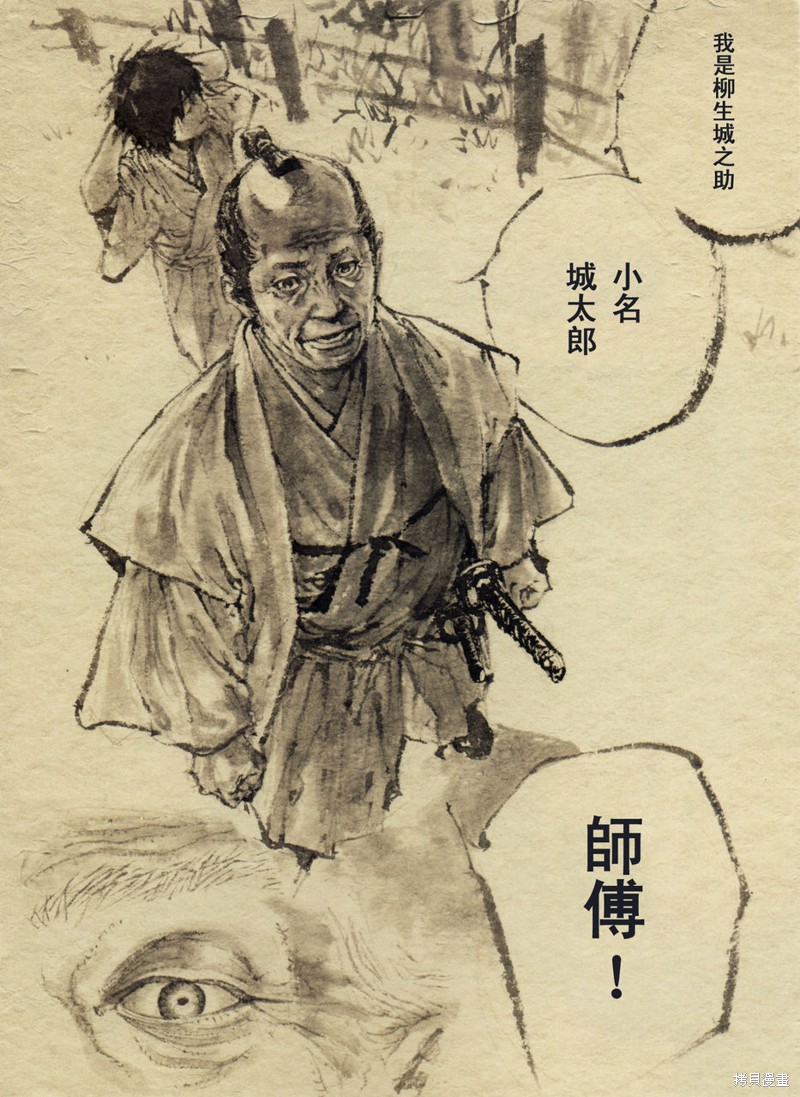 我是柳生城之助
小名
城太郎
師傅！
拷貝漫畫